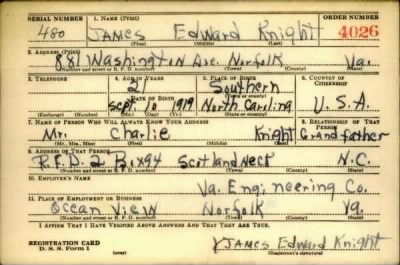 SERIAL NUMBER 1. NAME (Print) ORDER NUMBER
480 JAMES Edward Knight 4026
(First) (Middle) (Last)
2. ADDRESS (Print)
881 Washington Ave. Norfolk Va.
(Number and street or R. F. D. number) (Town) (County) (State)
3. TELEPHONE 4. AGE IN YEARS 5. PLACE OF BIRTH 6. COUNTRY OF CITIZENSHIP
21 Southern
DATE OF BIRTH
Sept. 10 1919 North Carolina U.S.A.
(Exchange) (Number) (Mo.) (Day) (Yr.) (State or country)
7. NAME OF PERSON WHO WILL ALWAYS KNOW YOUR ADDRESS 8. RELATIONSHIP OF THAT PERSON
Mr. Charlie Knight Grandfather
(Mr., Mrs., Miss) (First) (Middle) (Last)
9. ADDRESS OF THAT PERSON
R.F.D. 2 Box 94 Scotland Neck N.C.
(Number and street or R. F. D. number) (Town) (County) (State)
10. EMPLOYER'S NAME
Va. Engineering Co.
11. PLACE OF EMPLOYMENT OR BUSINESS
Ocean View Norfolk Va.
(Number and street or R. F. D. number) (Town) (County) (State)
I AFFIRM THAT I HAVE VERIFIED ABOVE ANSWERS AND THAT THEY ARE TRUE.
REGISTRATION CARD
D. S. S. Form 1 (over)
JAMES Edward Knight
(Registrant's signature)